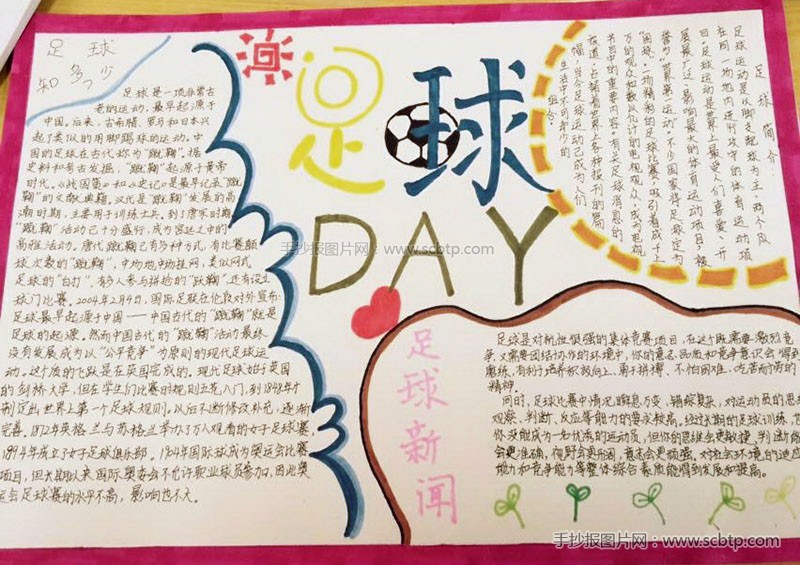 足球
知多少
足球是一项非常古
老的运动,最早起源于
中国,后来,古希腊、罗马和日本兴
起了类似的用脚踢球的运动。中
国的足球在古代称为“蹴鞠”。据
史料和考古发掘,“蹴鞠”起源于黄帝
时代。《战国策》和《史记》是最早记录“蹴
鞠”的文献典籍。汉代是“蹴鞠”发展的高
潮时期,主要用于训练士兵。到了唐宋时期
“蹴鞠”活动已十分盛行,成为宫廷之中的
高雅活动。唐代蹴鞠已有多种方式,有比赛颠
球次数的“打鞠”,中场地中场挂网,类似网式
足球的“白打”,多人参与拼抢的“跃鞠”,还有设立
球门比赛。2004年2月4日,国际足联在伦敦对外宣布:
足球最早起源于中国——中国古代的“蹴鞠”就是
足球的起源。然而中国古代的“蹴鞠”活动最终
没有发展成为以“公平竞争”为原则的现代足球运
动。这个质的飞跃是在英国完成的。现代足球始于英国
的剑桥大学,但在学生们比赛时规则五花八门,到1848年才
制定出世界上第一个足球规则。以后不断修改补充,逐渐
完善。1872年英格兰与苏格兰举办了万人观看的女子足球赛,
1894年成立了女子足球俱乐部。1904年国际球成为奥运会比赛
项目,但长期以来国际奥委会不允许职业球员参加,因此奥
运会足球赛的水平不高,影响也不大。
足球
DAY
足球简介:
足球运动是以脚支配球为主,两个队
在同一场地内进行攻守的体育运动项
目。足球运动是世界上最受人们喜爱、开
展最广泛、影响最大的体育运动项目,被
誉为“世界第一运动”。不少国家将足球定为
“国球”。一场精彩的足球比赛,吸引着成千上
万的观众和数以亿计的电视观众,成为电视
节目中的重要内容;有关足球消息的
报道,占据着世界上各种报刊的篇
幅,当今足球运动已成为人们
生活中不可缺少的
组合。
足球新闻
足球是对抗性很强的集体竞赛项目,在这个既需要激烈竞
争又需要团结协作的环境中,你的意志品质和竞争意识会得到
磨练,有利于培养积极向上、勇于拼搏、不怕困难、吃苦耐劳的
精神。
同时,足球比赛中情况瞬息万变、错综复杂,对运动员的思
观察、判断、反应等能力的要求较高。经过长期的足球训练,
你没能成为一名优秀的运动员,但你的思维会更敏捷,判断能
会更准确,视野会更开阔,意志会更顽强。对社会环境的适应
能力和竞争能力等整体综合素质能得到发展和提高。
手抄报图片网:www.scbtp.com
手抄报图片网:www.scbtp.com